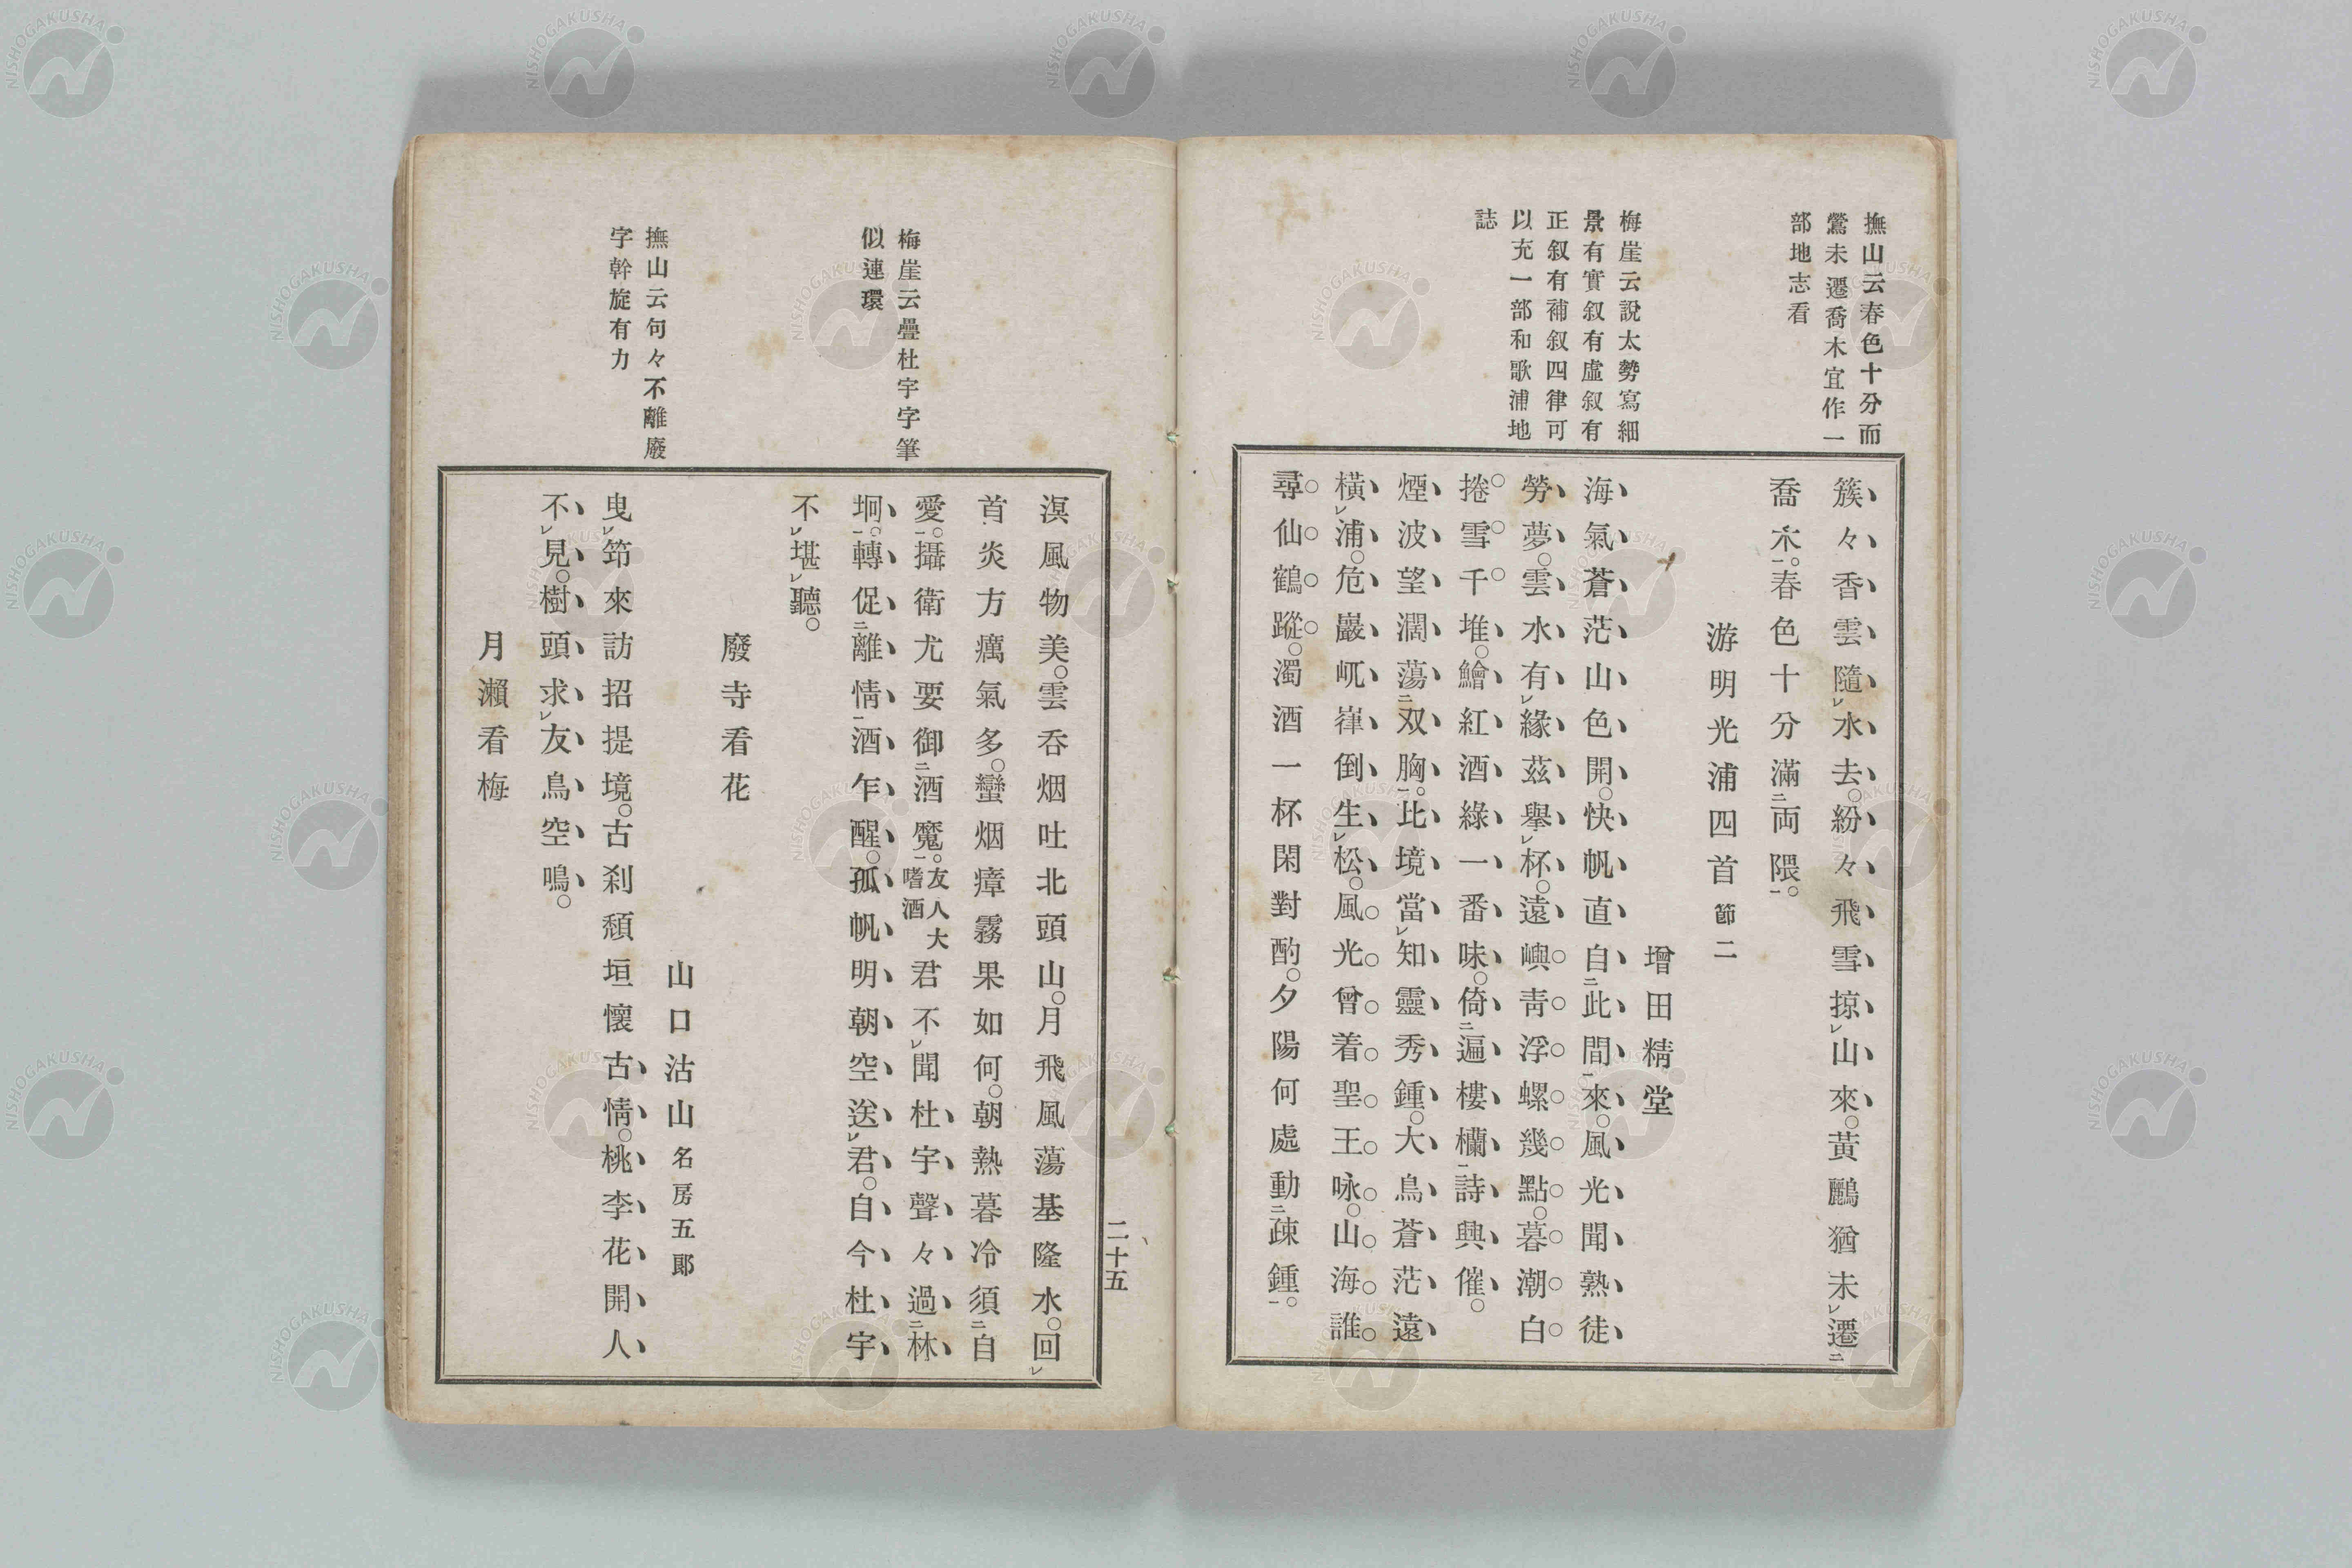 撫山云春色十分而
鶯未遷喬木宜作一
部地志看
梅崖云說太勢寫細
景有實叙有虛叙有
正叙有補叙四律可
以充一部和歌浦地
誌
簇々香雲隨レ水去。紛々飛雪掠レ山來。黃鸝猶未レ遷二
喬木一。春色十分滿二両隈一。
游明光浦四首節二
增田精堂
海氣蒼茫山色開。快帆直自二此間一來。風光聞熟徒
勞夢。雲水有レ緣茲擧レ杯。遠嶼靑浮螺幾點。暮潮白
捲雪千堆。鱠紅酒綠一番味。倚二遍樓欄一詩興催。
煙波望濶蕩二双胸一。比境當レ知靈秀鍾。大鳥蒼茫遠
橫レ浦。危巖屼嵂倒生レ松。風光曾着聖王咏。山海誰
尋仙鶴蹤。濁酒一杯閑對酌。夕陽何處動二疎鍾一。
二十五
梅崖云疊杜宇字筆
似連環
撫山云句々不離廢
字幹旋有力
溟風物美。雲呑烟吐北頭山。月飛風蕩基隆水。回レ
首炎方癘氣多。蠻烟瘴霧果如何。朝熱暮冷須二自
愛一。攝衛尤要御二酒魔一。友人大嗜酒君不レ聞杜宇聲々過二林
坰一。轉促二離情一酒乍醒。孤帆明朝空送レ君。自今杜宇
不レ堪レ聽。
廢寺看花
山口沽山名房五郞
曳レ筇來訪招提境。古刹頽垣懷古情。桃李花開人
不レ見。樹頭求レ友鳥空鳴。
月瀨看梅
NISHOGAKUSHA